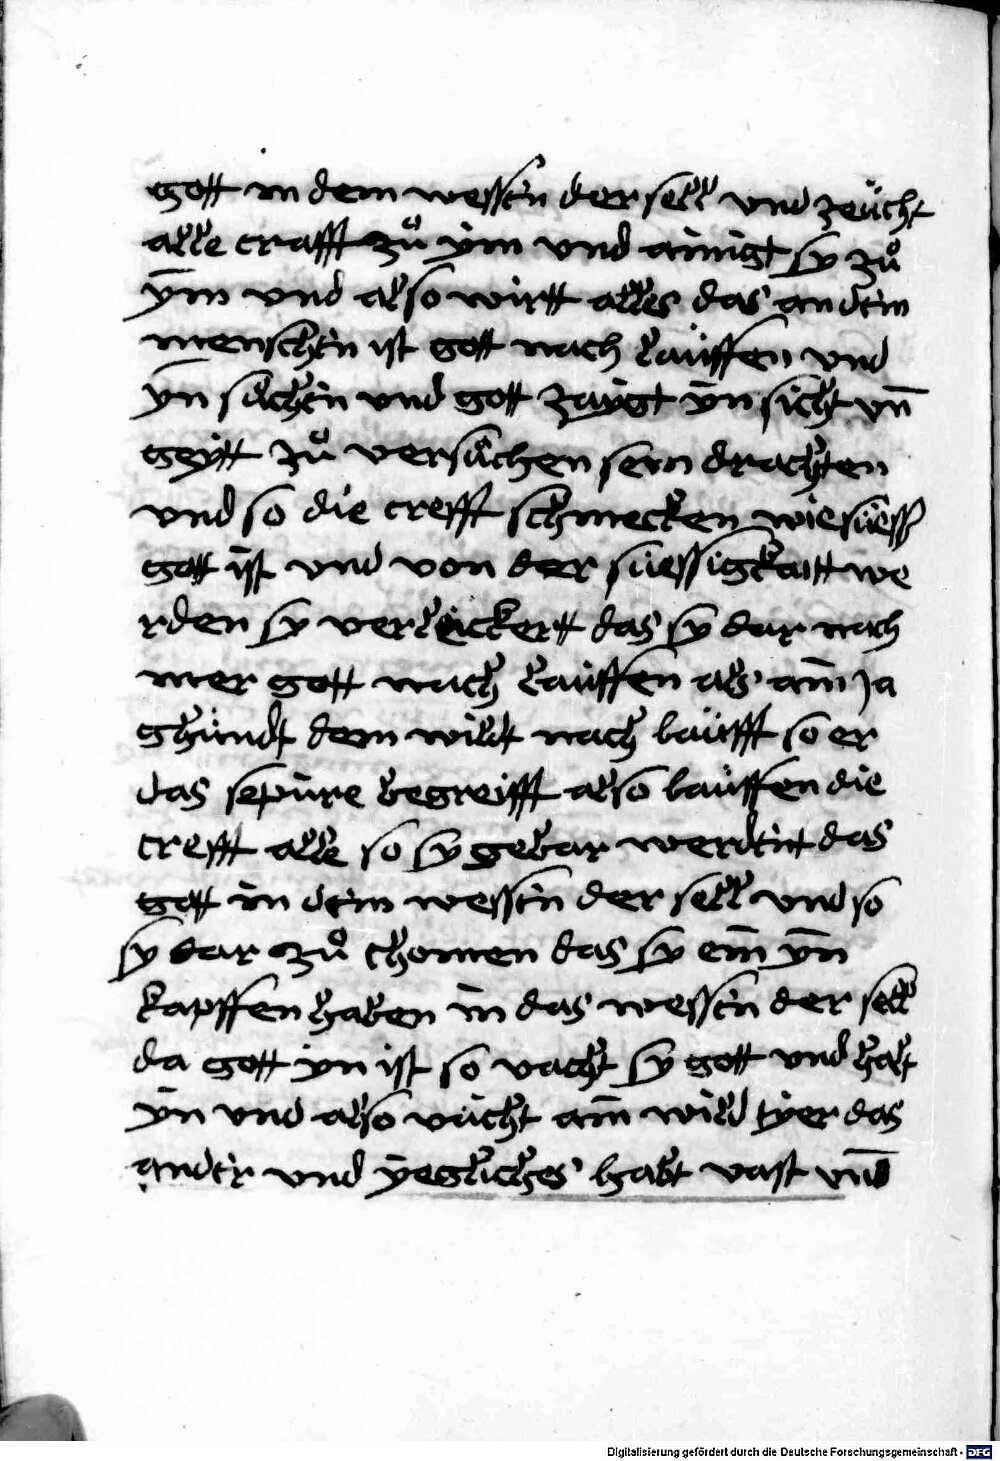 gott in dem wessen der sell und zeücht
alle crafft zů ym und ainigt sy zů
ym und also wirtt alles das an dem
menschen ist gott nach lauffen und
yn sůchen und gott zaygt yn sich vn̄
geytt zů versůchen sein drachten
und so die crefft schmecken wie süess
gott ist und von der süessigkaitt we
rden sy verleckertt das sy dar nach
mer gott nach lauffen als ain ja
ghündt dem wildt nach laüfft so er
das sepüre begreifft also lauffen die
crefft alle so sy gebar werdent das
gott in dem wessen der sell und so
sy dar zů chomen das sy ein yn
kapffen haben in das wessen der sell
da gott yn ist so vacht sy gott und halt
yn und also vächt ain wild tyer das
ander und yegliches habt vast vn̄
Digitalisierung gefördert durch die Deutsche Forschungsgemeinschaft - DFG